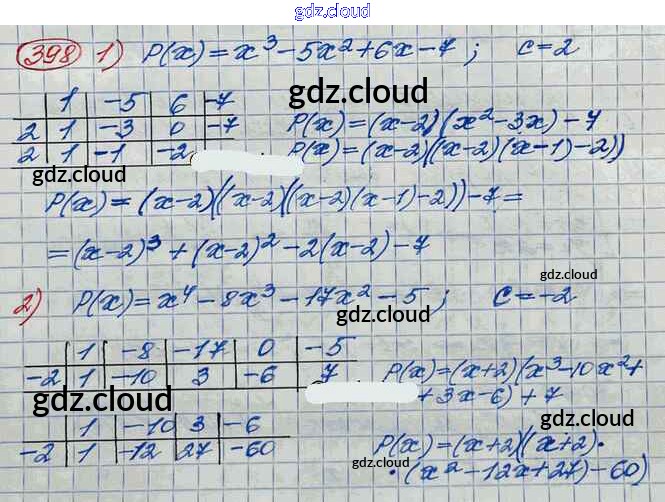 gdz.cloud
gdz.cloud
398 1) P(x) = x³ - 5x² + 6x - 7 ; c = 2
1 -5 6 -7
gdz.cloud
2 1 -3 0 -7 P(x) = (x-2)(x² - 3x) - 7
2 1 -1 -2 P(x) = (x-2)((x-2)(x-1)-2))
gdz.cloud
gdz.cloud
P(x) = (x-2)((x-2)((x-2)(x-1)-2))-7 =
= (x-2)³ + (x-2)² - 2(x-2) - 7
gdz.cloud
gdz.cloud
2) P(x) = x⁴ - 8x³ - 17x² - 5 ; c = -2
gdz.cloud
1 -8 -17 0 -5
-2 1 -10 3 -6 7 P(x) = (x+2)(x³ - 10x² +
+ 3x - 6) + 7
gdz.cloud
gdz.cloud
gdz.cloud
1 -10 3 -6
-2 1 -12 27 -60 P(x) = (x+2)((x+2)·
·(x² - 12x + 27) - 60)
gdz.cloud